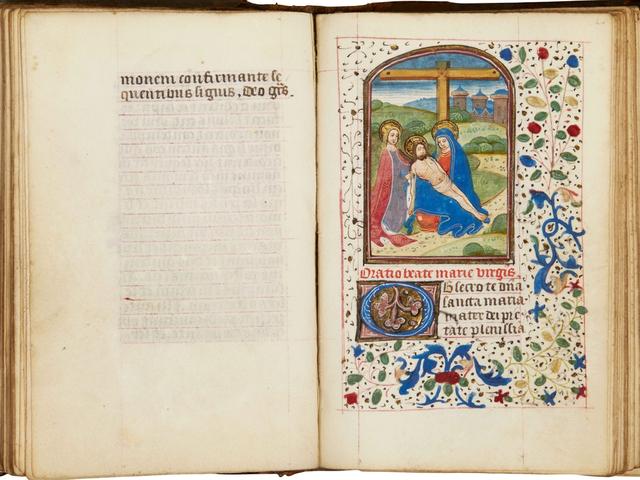 monem confirmante se
quentibus signis. Deo grãs.
Oratio beate marie virgis
Obsecro te dña
sancta maria
mater dei pie
tate plenissia